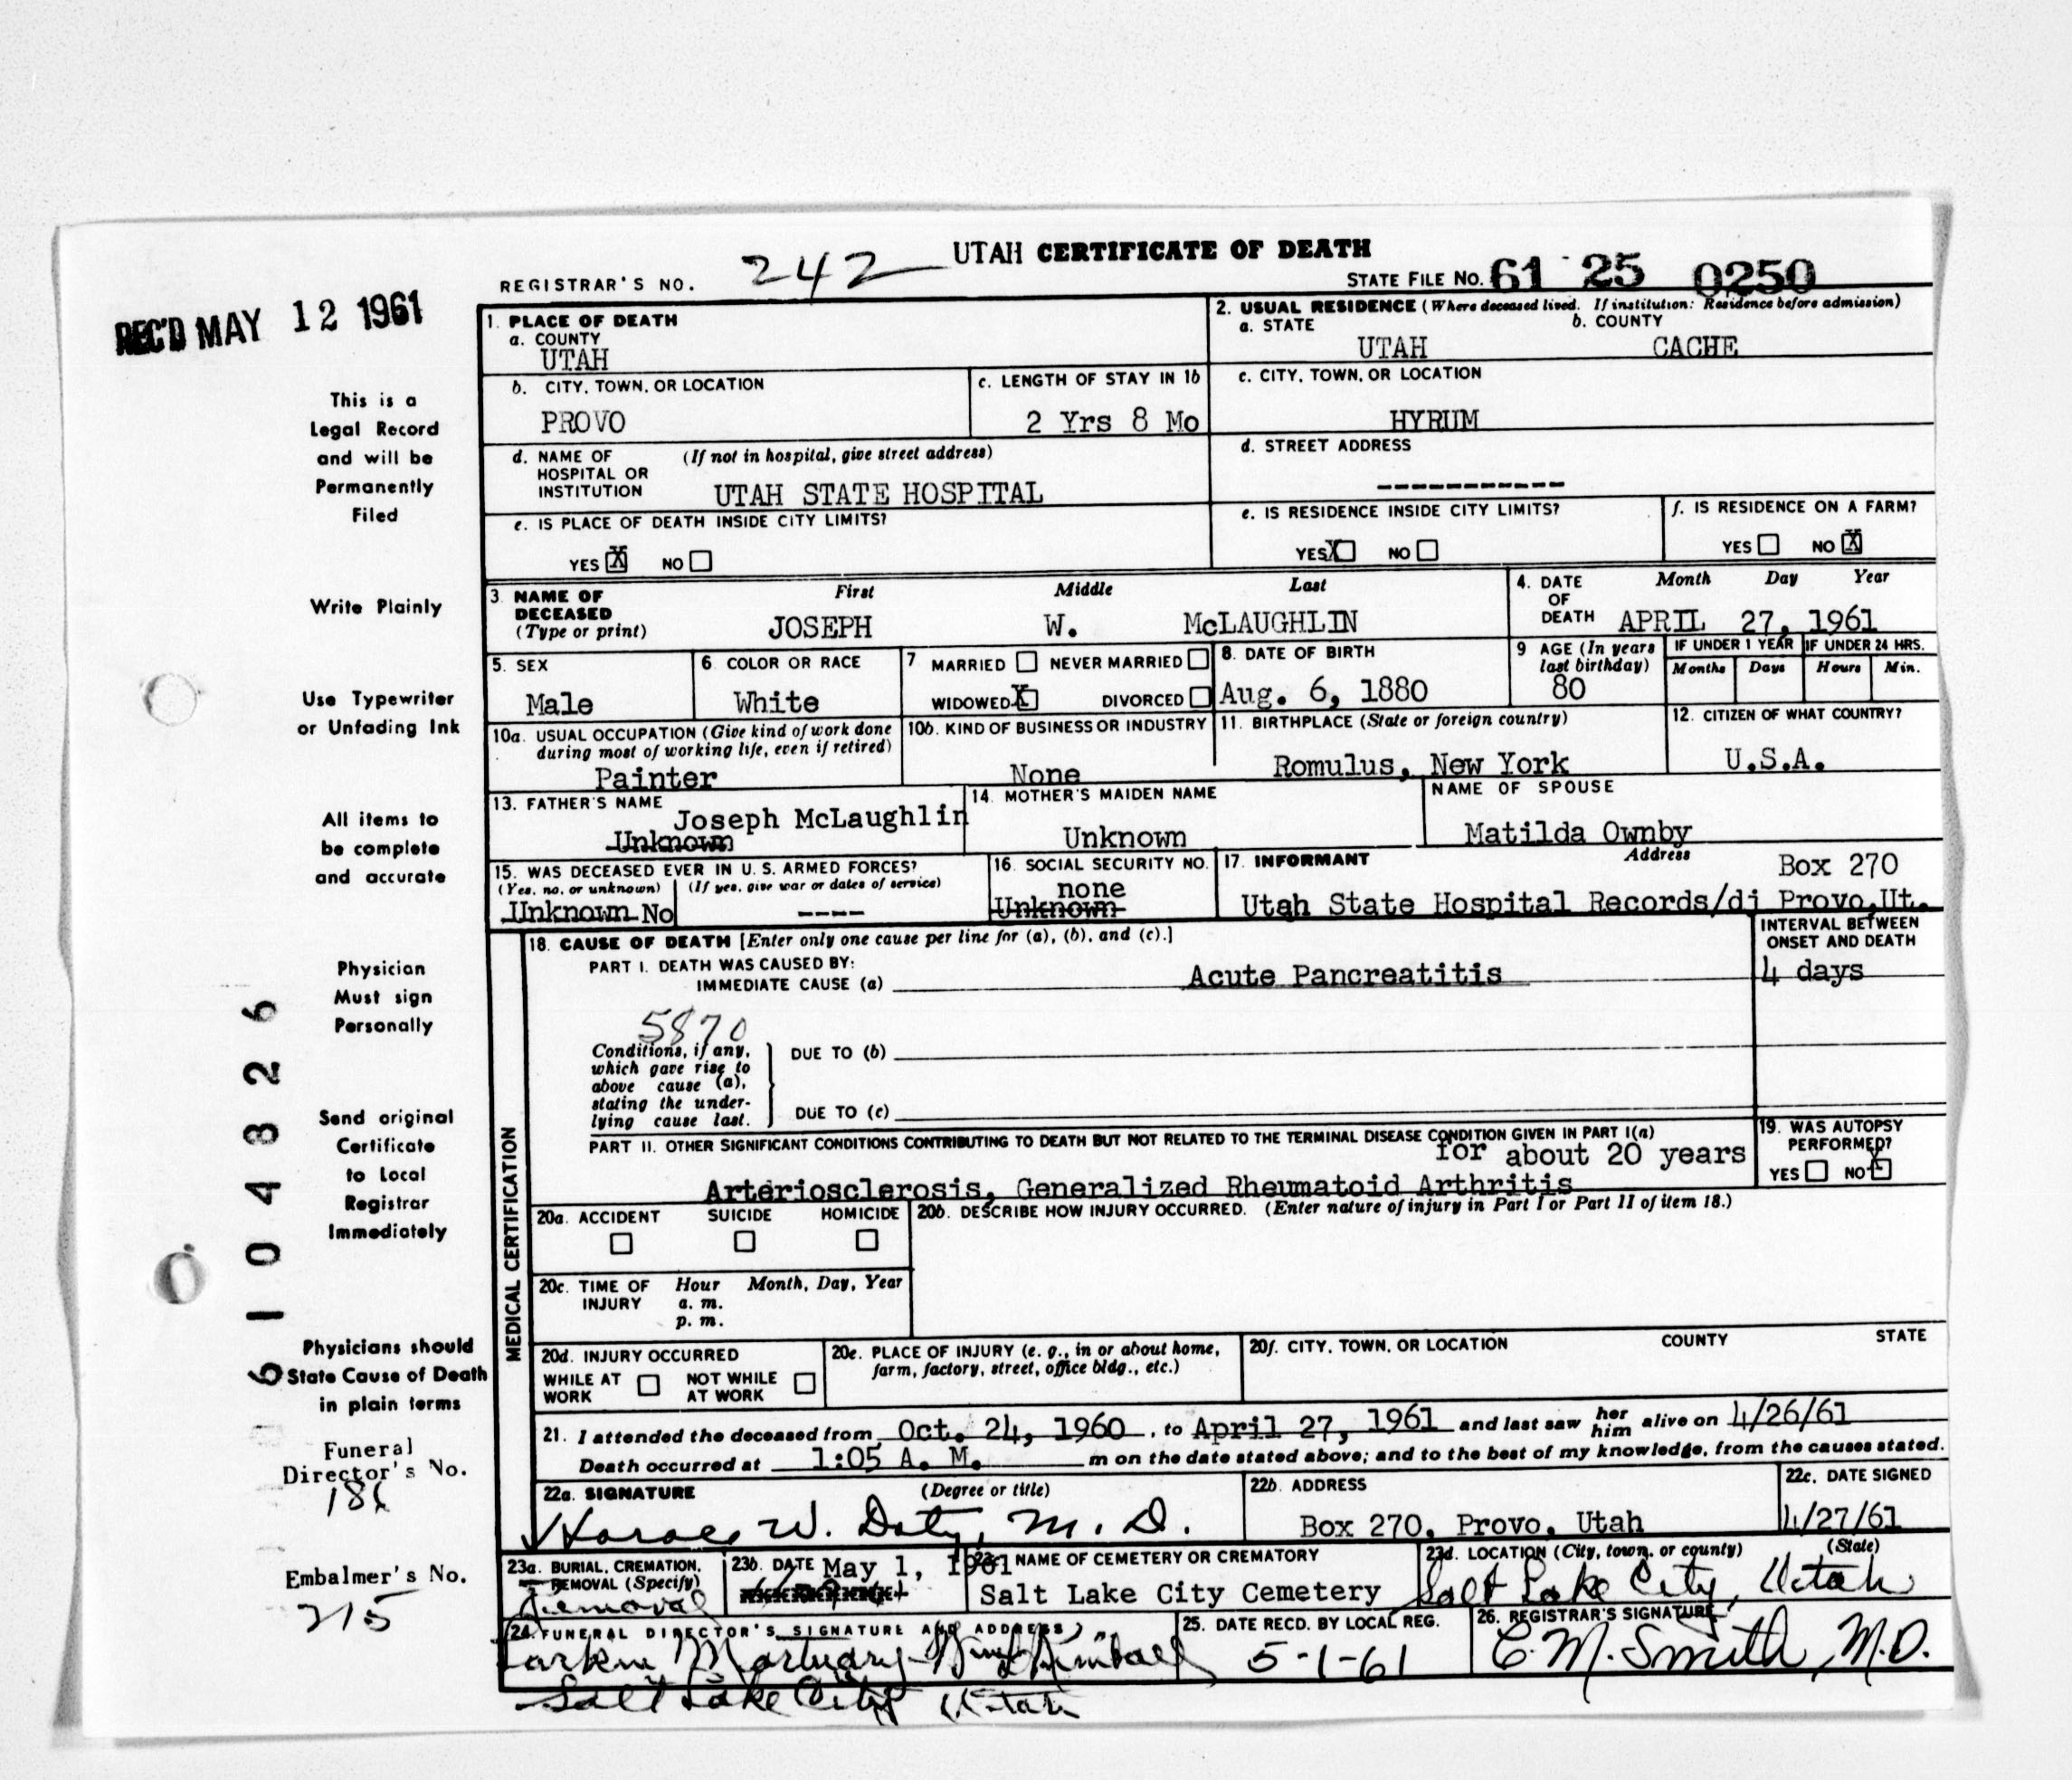 UTAH CERTIFICATE OF DEATH
REGISTRAR'S NO. 242
STATE FILE NO. 61 25 0250
REC'D MAY 12 1961
This is a
Legal Record
and will be
Permanently
Filed
Write Plainly
Use Typewriter
or Unfading Ink
All items to
be complete
and accurate
Physician
Must sign
Personally
Send original
Certificate
to Local
Registrar
Immediately
Physicians should
State Cause of Death
in plain terms
Funeral
Director's No.
Embalmer's No.
215
6104826
1. PLACE OF DEATH
a. COUNTY
UTAH
2. USUAL RESIDENCE (Where deceased lived. If institution: Residence before admission)
a. STATE b. COUNTY
UTAH CACHE
b. CITY, TOWN, OR LOCATION
PROVO
c. LENGTH OF STAY IN 1b
2 Yrs 8 Mo
c. CITY, TOWN, OR LOCATION
HYRUM
d. NAME OF (If not in hospital, give street address)
HOSPITAL OR
INSTITUTION UTAH STATE HOSPITAL
d. STREET ADDRESS
-----------
e. IS PLACE OF DEATH INSIDE CITY LIMITS?
YES X NO
e. IS RESIDENCE INSIDE CITY LIMITS?
YES X NO
f. IS RESIDENCE ON A FARM?
YES NO X
3. NAME OF First Middle Last
DECEASED
(Type or print) JOSEPH W. McLAUGHLIN
4. DATE Month Day Year
OF
DEATH APRIL 27, 1961
5. SEX
Male
6. COLOR OR RACE
White
7 MARRIED NEVER MARRIED
WIDOWED X DIVORCED
8. DATE OF BIRTH
Aug. 6, 1880
9 AGE (In years
last birthday)
80
IF UNDER 1 YEAR IF UNDER 24 HRS.
Months Days Hours Min.
10a. USUAL OCCUPATION (Give kind of work done
during most of working life, even if retired)
Painter
10b. KIND OF BUSINESS OR INDUSTRY
None
11. BIRTHPLACE (State or foreign country)
Romulus, New York
12. CITIZEN OF WHAT COUNTRY?
U.S.A.
13. FATHER'S NAME
Joseph McLaughlin
Unknown
14. MOTHER'S MAIDEN NAME
Unknown
NAME OF SPOUSE
Matilda Ownby
15. WAS DECEASED EVER IN U. S. ARMED FORCES?
(Yes, no, or unknown) (If yes, give war or dates of service)
Unknown No ----
16. SOCIAL SECURITY NO.
none
Unknown
17. INFORMANT Address Box 270
Utah State Hospital Records/dj Provo,Ut.
MEDICAL CERTIFICATION
18. CAUSE OF DEATH [Enter only one cause per line for (a), (b), and (c).]
INTERVAL BETWEEN
ONSET AND DEATH
PART I. DEATH WAS CAUSED BY:
IMMEDIATE CAUSE (a) Acute Pancreatitis
4 days
5870
Conditions, if any,
which gave rise to
above cause (a),
stating the under-
lying cause last.
DUE TO (b)
DUE TO (c)
PART II. OTHER SIGNIFICANT CONDITIONS CONTRIBUTING TO DEATH BUT NOT RELATED TO THE TERMINAL DISEASE CONDITION GIVEN IN PART I(a)
for about 20 years
Arteriosclerosis, Generalized Rheumatoid Arthritis
19. WAS AUTOPSY
PERFORMED?
YES NO X
20a. ACCIDENT SUICIDE HOMICIDE
20b. DESCRIBE HOW INJURY OCCURRED. (Enter nature of injury in Part I or Part II of item 18.)
20c. TIME OF Hour Month, Day, Year
INJURY a. m.
p. m.
20d. INJURY OCCURRED
WHILE AT NOT WHILE
WORK AT WORK
20e. PLACE OF INJURY (e. g., in or about home,
farm, factory, street, office bldg., etc.)
20f. CITY, TOWN, OR LOCATION COUNTY STATE
21. I attended the deceased from Oct. 24, 1960, to April 27, 1961 and last saw her him alive on 4/26/61
Death occurred at 1:05 A. M. m on the date stated above; and to the best of my knowledge, from the causes stated.
22a. SIGNATURE (Degree or title)
Horace W. Doty, M. D.
22b. ADDRESS
Box 270, Provo, Utah
22c. DATE SIGNED
4/27/61
23a. BURIAL, CREMATION,
REMOVAL (Specify)
Removal
23b. DATE May 1, 1961
23c. NAME OF CEMETERY OR CREMATORY
Salt Lake City Cemetery
23d. LOCATION (City, town, or county) (State)
Salt Lake City, Utah
24. FUNERAL DIRECTOR'S SIGNATURE AND ADDRESS
Larkin Mortuary Kimball
Salt Lake City Utah
25. DATE RECD. BY LOCAL REG.
5-1-61
26. REGISTRAR'S SIGNATURE
C. M. Smith, M.D.